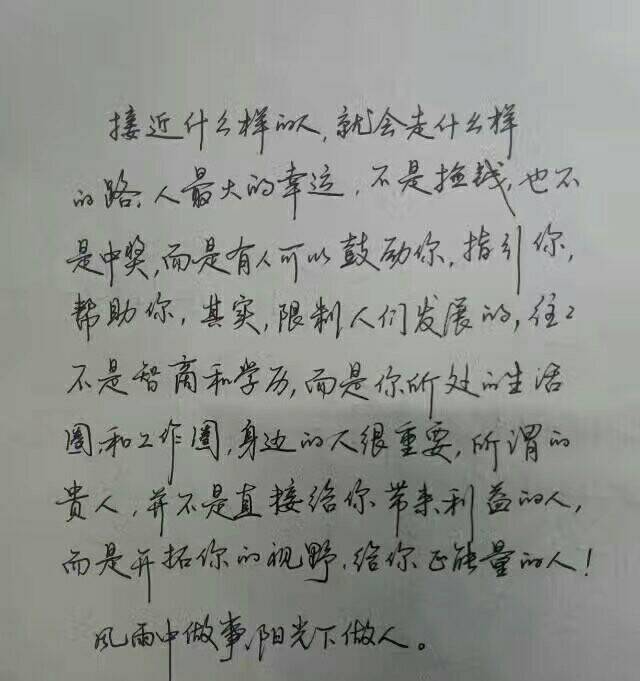 接近什么样的人,就会走什么样
的路.人最大的幸运,不是捡钱,也不
是中奖,而是有人可以鼓励你,指引你,
帮助你,其实,限制人们发展的,往々
不是智商和学历,而是你所处的生活
圈,和工作圈,身边的人很重要,所谓的
贵人,并不是直接给你带来利益的人,
而是开拓你的视野,给你正能量的人!
风雨中做事,阳光下做人。